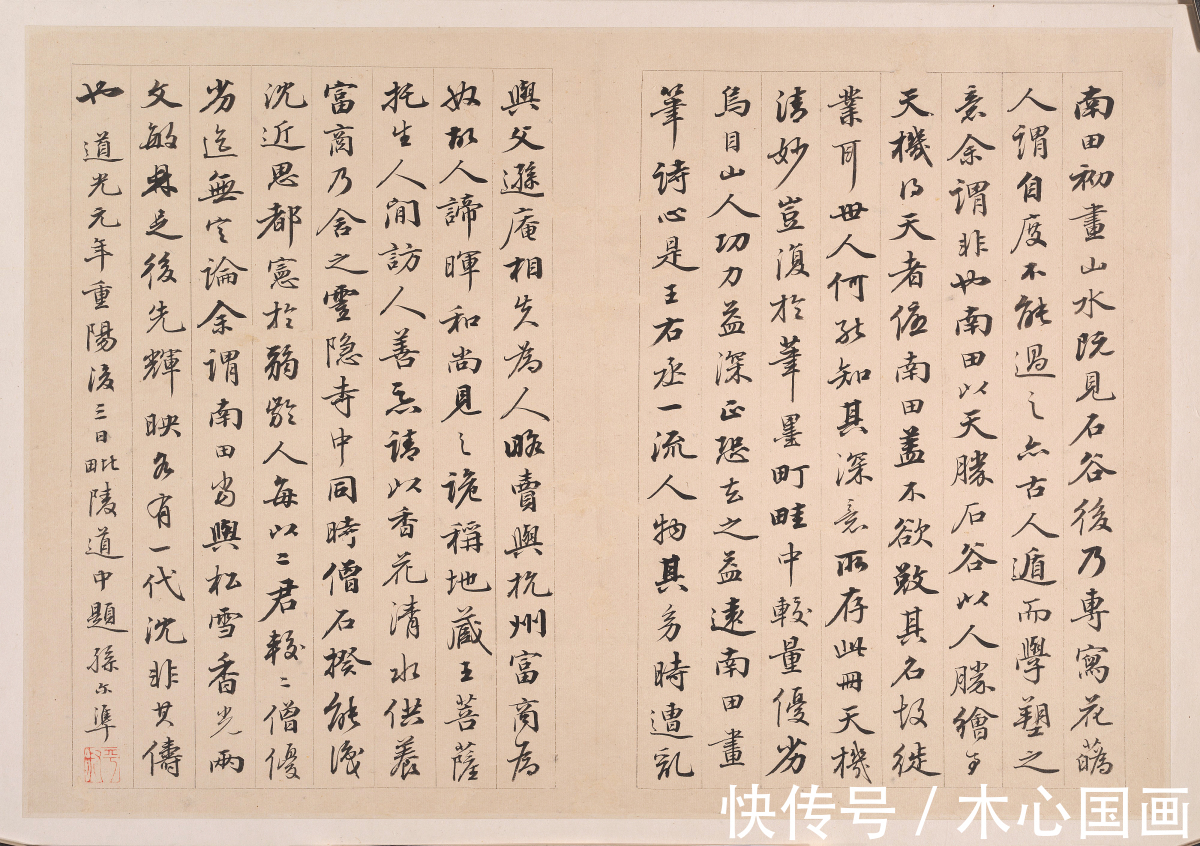 南田初畫山水既見石谷後乃專寫花蘤
人謂自度不能過之亦古人遁而學塑之
意余謂非也南田以天勝石谷以人勝繪事
天機得天者优南田蓋不欲敚其名故徙
業耳世人何能知其深意所存此冊天機
清妙豈復於筆墨町畦中較量優劣
烏目山人功力益深正恐去之益遠南田畫
筆詩心是王右丞一流人物其幼時遭亂
與父遜庵相失為人略賣與杭州富商為
奴故人諦暉和尚見之詭稱地藏王菩薩
托生人間訪人善惡請以香花清水供養
富商乃舍之靈隱寺中同時僧石揆能識
沈近思都憲於弱齡人每以二君較二僧優
劣迄無定論余謂南田當與松雪香光兩
文敏鼎足後先輝映各有一代沈非其儔
也 道光元年重陽後三日毗陵道中題 孫爾準
快传号 / 木心国画